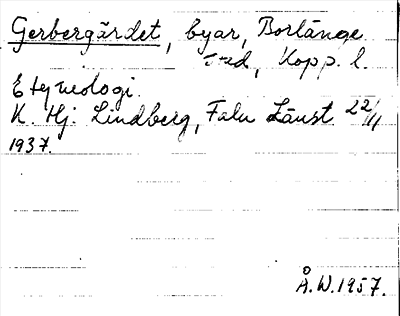 Gerbergärdet, byar, Borlänge
Kopp. l.
Etymologi.
K. Hj. Lindberg, Falu Länst. 22/11
1937.
Å.W.1957.